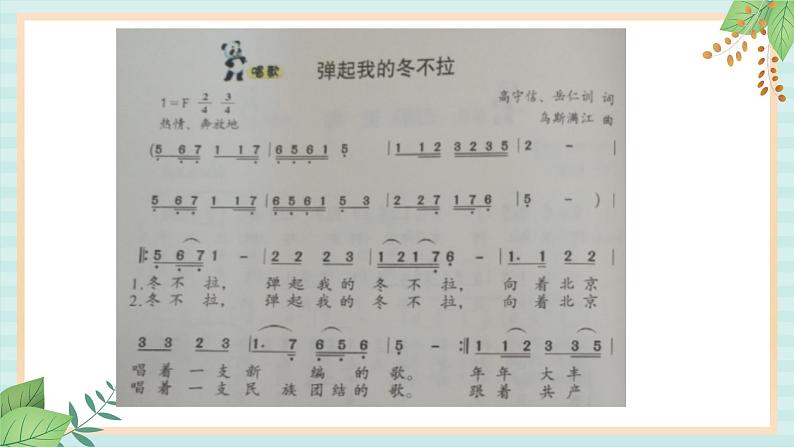 唱歌
弹起我的冬不拉
1=F 2/4 3/4
高守信、岳仁训 词
热情、奔放地
乌斯满江 曲
(5 6 7 1 1 7 | 6 5 6 1 5 | 1 1 2 3 2 3 5 | 2 - |
5 6 7 1 1 7 | 6 5 6 1 5 3 | 2 2 7 1 7 6 | 5 - ) |
‖: 5 6 7 1 - | 2 2 2 3 | 1 2 1 7 6 - | 1. 1 2 2 2 |
1.冬 不 拉， 弹 起 我 的 冬 不 拉， 向 着 北 京
2.冬 不 拉， 弹 起 我 的 冬 不 拉， 向 着 北 京
3 3 2 3 | 1. 7 6 5 6 | 5 - :‖ 1 1 2 3 3 5 |
唱 着 一 支 新 编 的 歌。 年 年 大 丰
唱 着 一 支 民 族 团 结 的 歌。 跟 着 共 产